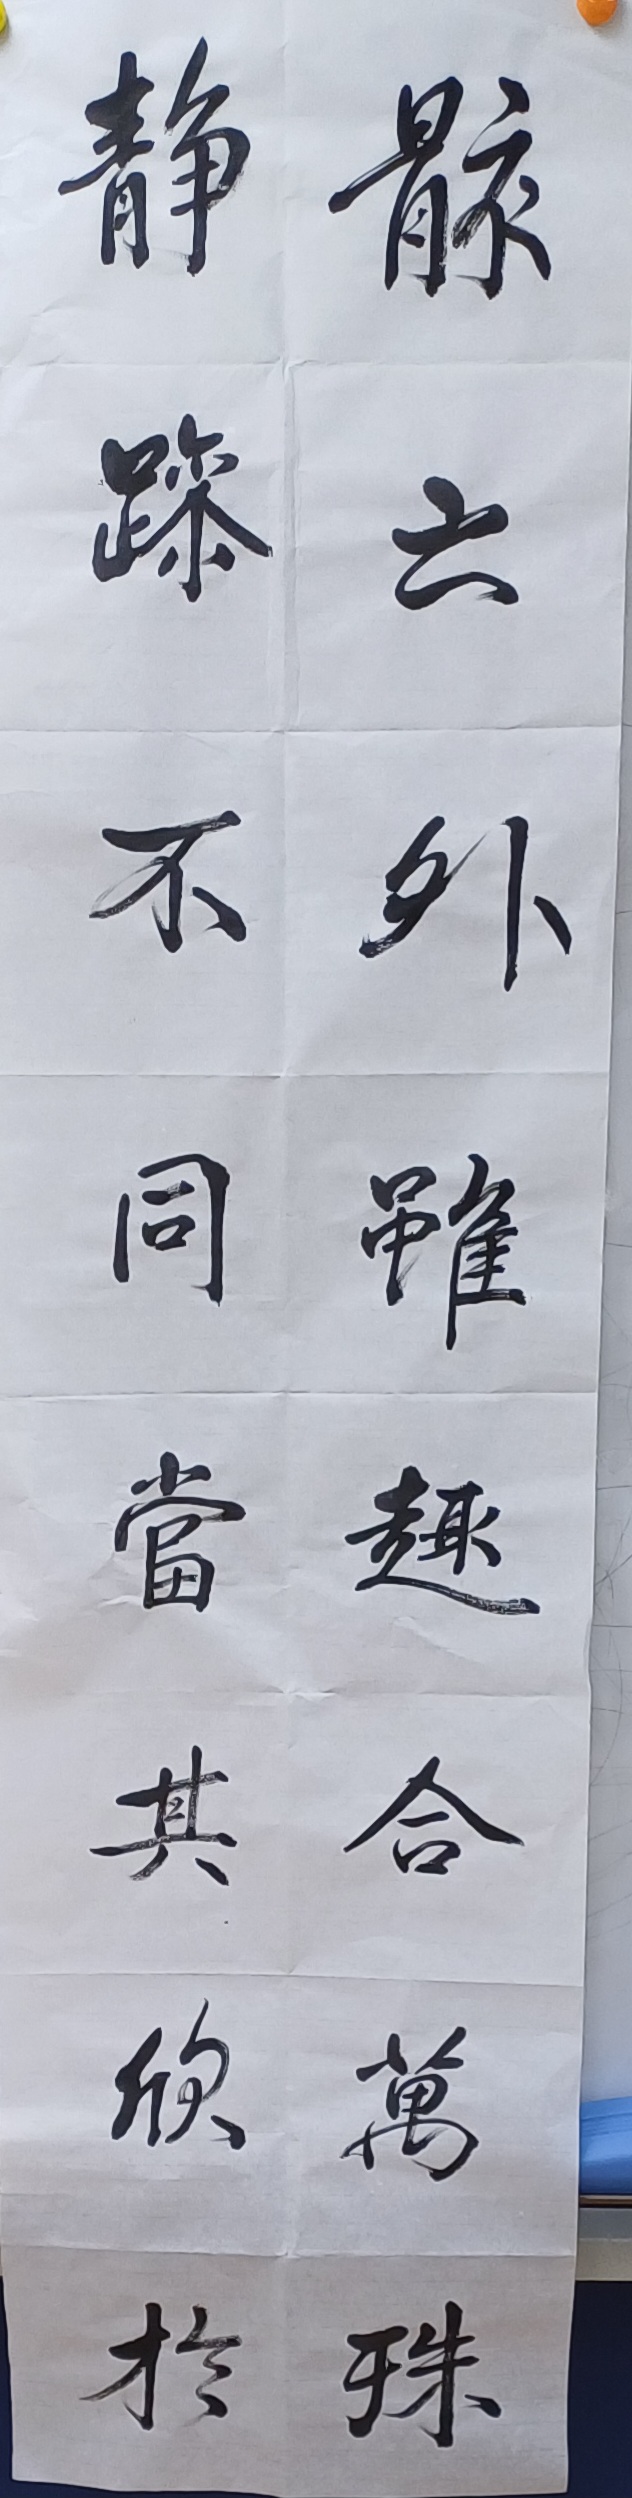 骸之外雖趣合萬殊
静躁不同當其欣於